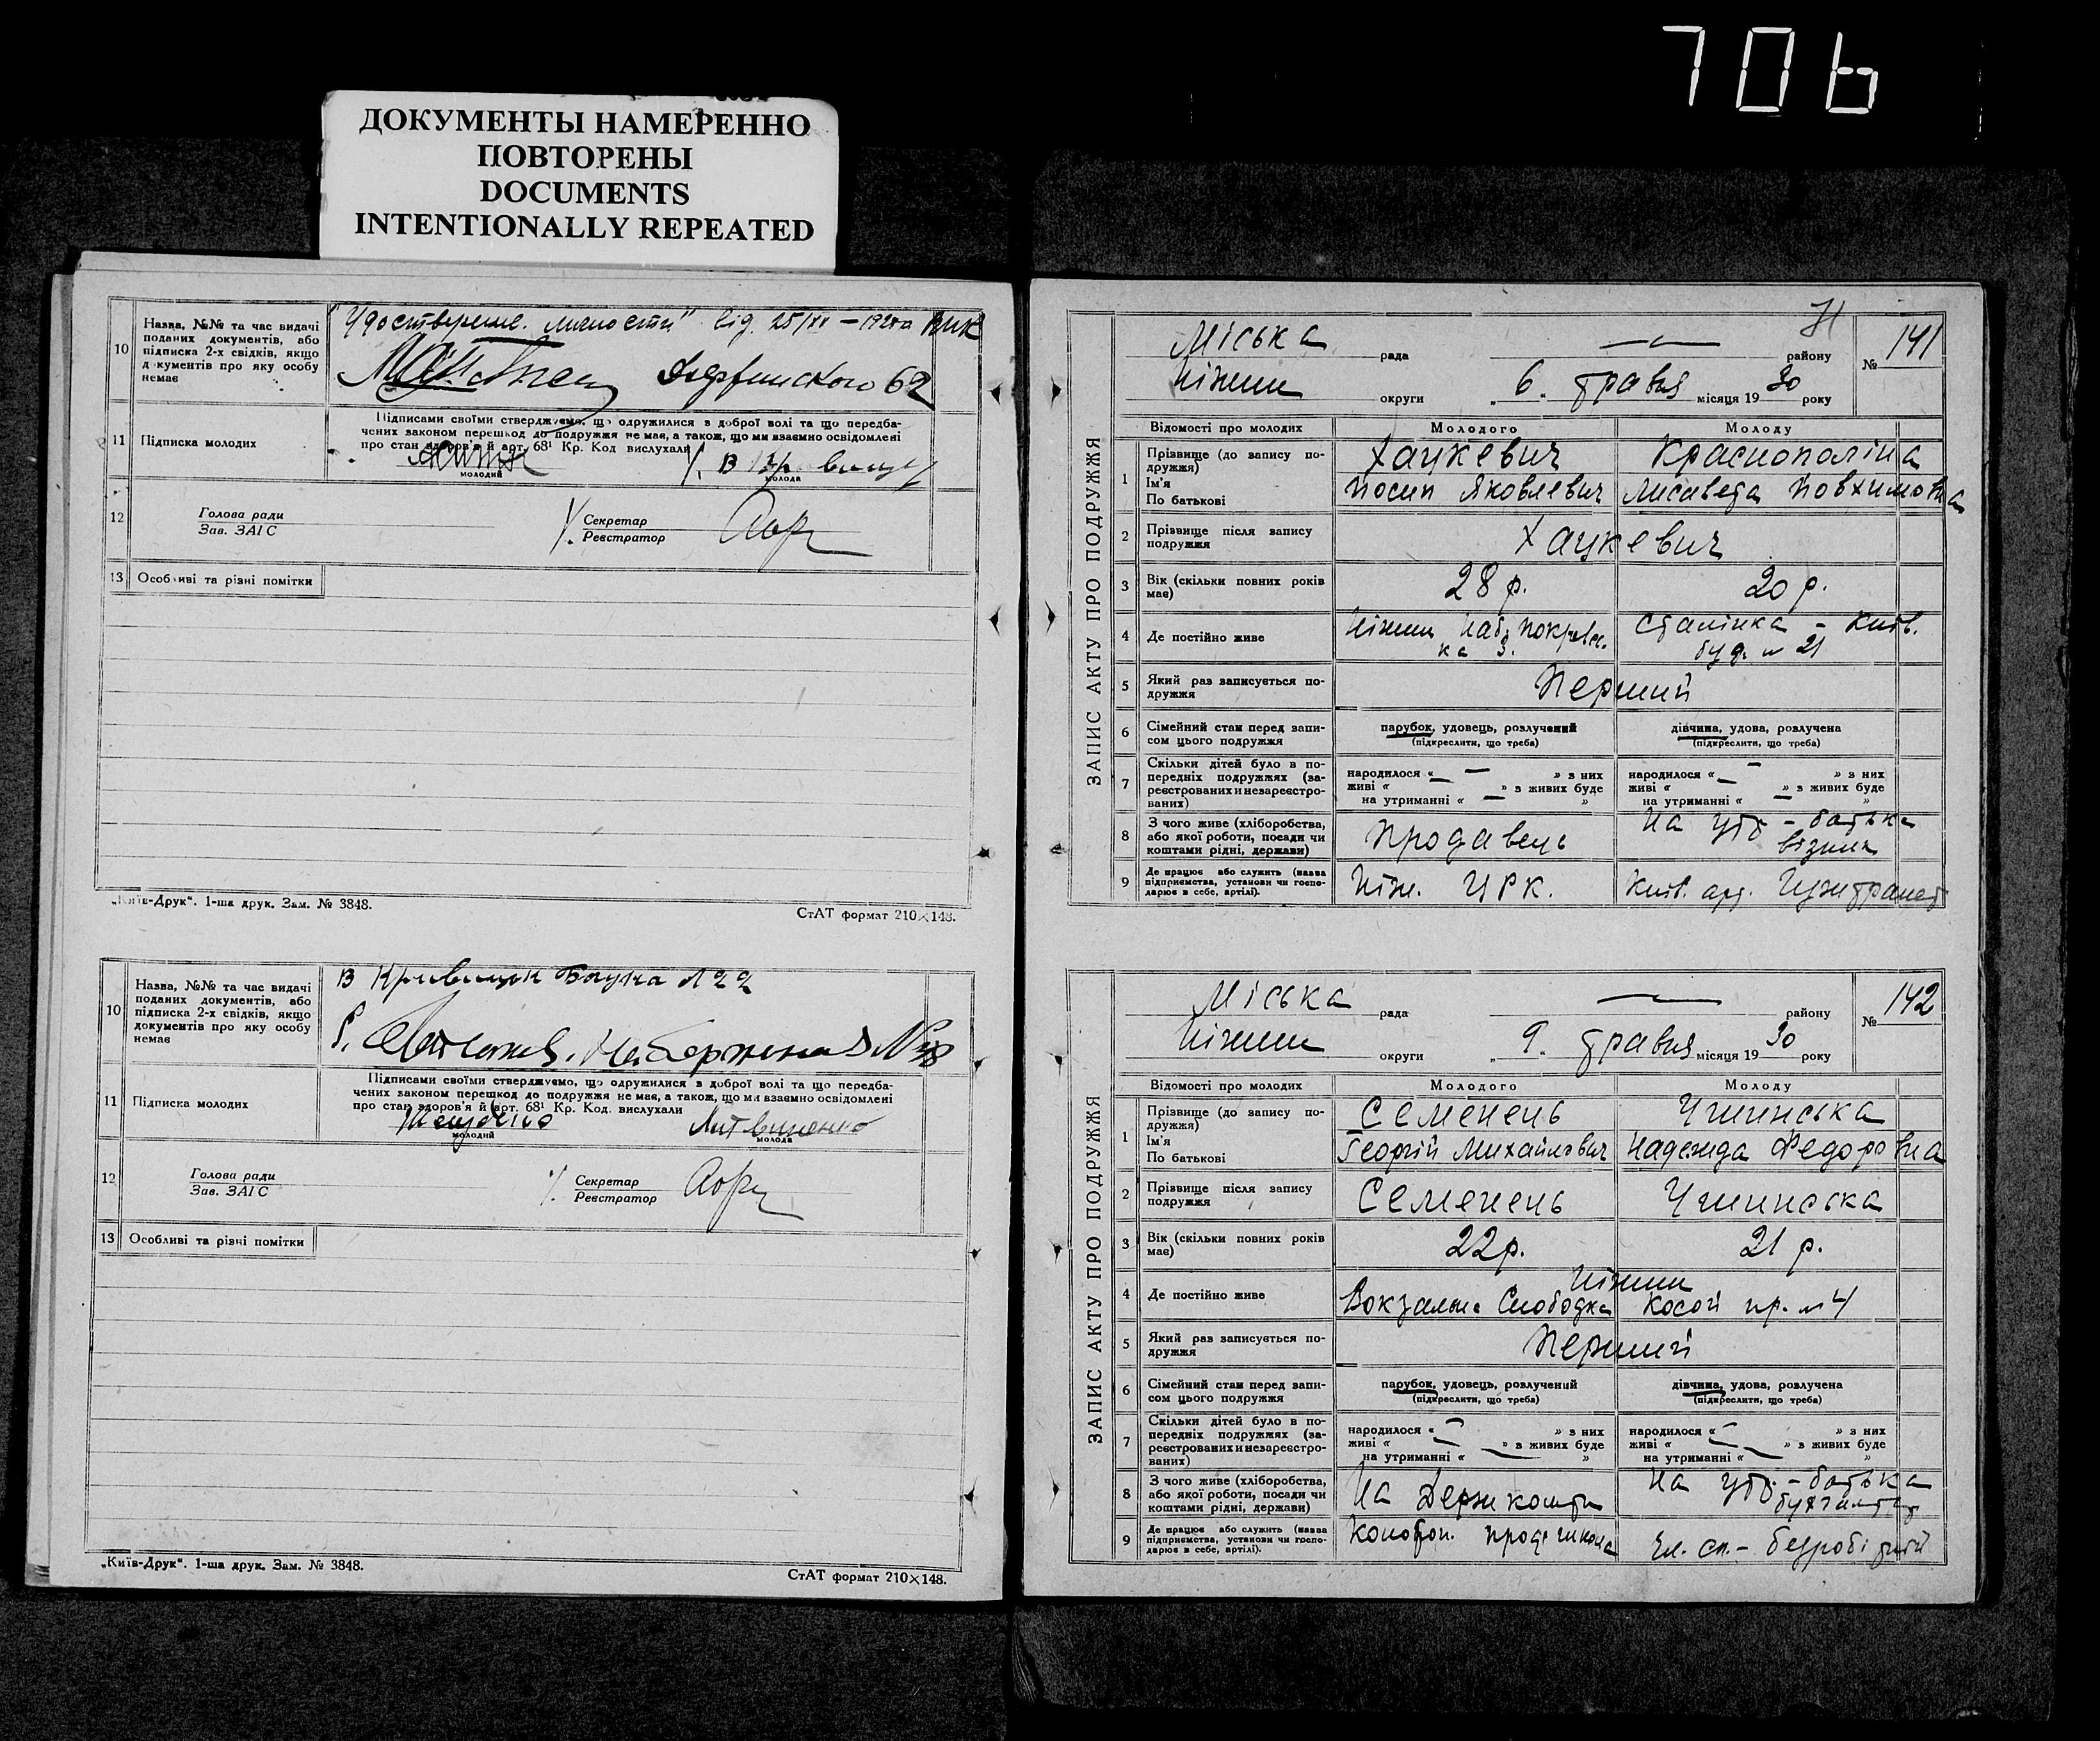 706
ДОКУМЕНТЫ НАМЕРЕННО
ПОВТОРЕНЫ
DOCUMENTS
INTENTIONALLY REPEATED
10
Назва, №№ та час видачі
поданих документів, або
підписка 2-х свідків, якщо
документів про яку особу
немає
62
11
Підписка молодих
Підписами своїми стверджуємо, що одружилися в доброї волі та що передба-
чених законом перешкод до подружжя не має, а також, що ми взаємно освідомлені
про стан здоров'я й арт. 68¹ Кр. Код вислухали
молодий
молода
12
Голова ради
Зав. ЗАГС
Секретар
Реєстратор
13 Особливі та різні помітки
„Київ-Друк“. 1-ша друк. Зам. № 3848.
СтАТ формат 210×148.
10
Назва, №№ та час видачі
поданих документів, або
підписка 2-х свідків, якщо
документів про яку особу
немає
11
Підписка молодих
Підписами своїми стверджуємо, що одружилися в доброї волі та що передба-
чених законом перешкод до подружжя не має, а також, що ми взаємно освідомлені
про стан здоров'я й арт. 68¹ Кр. Код. вислухали
молодий
Литвиненко
молода
12
Голова ради
Зав. ЗАГС
Секретар
Реєстратор
13 Особливі та різні помітки
„Київ-Друк“. 1-ша друк. Зам. № 3848.
СтАТ формат 210×148.
71
ЗАПИС АКТУ ПРО ПОДРУЖЖЯ
Міська рада — району № 141
Ніжин округи „ 6. травня місяця 1930 року
Відомості про молодих Молодого Молоду
1 Прізвище (до запису по-
дружжя)
Ім'я
По батькові
Хацкевич Краснополіна
Йосип Яковлевич Лисавета Йовхимовна
2 Прізвище після запису
подружжя
Хацкевич
3 Вік (скільки повних років
має)
28 р. 20 р.
4 Де постійно живе
Ніжин Наб. Покровсь-
ка 3.
Сталінка - Київ.
буд. № 21
5 Який раз записується по-
дружжя
Перший
6 Сімейний стан перед запи-
сом цього подружжя
парубок, удовець, розлучений
(підкреслити, що треба)
дівчина, удова, розлучена
(підкреслити, що треба)
7 Скільки дітей було в по-
передніх подружжях (за-
реєстрованих и незареєстро-
ваних)
народилося « — » з них
живі « — » з живих буде
на утриманні « — »
народилося « — » з них
живі « — » з живих буде
на утриманні « — »
8 З чого живе (хліборобства,
або якої роботи, посади чи
коштами рідні, держави)
продавець
на утр - батька
візник
9 Де працює або служить (назва
підприємства, установи чи госпо-
дарює в себе, артілі).
Ніж. ЦРК.
Київ. арт. Гужтранст
ЗАПИС АКТУ ПРО ПОДРУЖЖЯ
Міська рада — району № 142
Ніжин округи „ 9. травня місяця 1930 року
Відомості про молодих Молодого Молоду
1 Прізвище (до запису по-
дружжя)
Ім'я
По батькові
Семенець
Георгій Михайлович Надежда Федоровна
2 Прізвище після запису
подружжя
Семенець
3 Вік (скільки повних років
має)
22 р. 21 р.
4 Де постійно живе
Ніжин
Вокзальна Слободка Косой пр. № 4
5 Який раз записується по-
дружжя
Перший
6 Сімейний стан перед запи-
сом цього подружжя
парубок, удовець, розлучений
(підкреслити, що треба)
дівчина, удова, розлучена
(підкреслити, що треба)
7 Скільки дітей було в по-
передніх подружжях (за-
реєстрованих и незареєстро-
ваних)
народилося « — » з них
живі « — » з живих буде
на утриманні « — »
народилося « — » з них
живі « — » з живих буде
на утриманні « — »
8 З чого живе (хліборобства,
або якої роботи, посади чи
коштами рідні, держави)
На Держ кошти
на утр. - батька
бухгалтер
9 Де працює або служить (назва
підприємства, установи чи госпо-
дарює в себе, артілі).
Конотоп.
безробітній